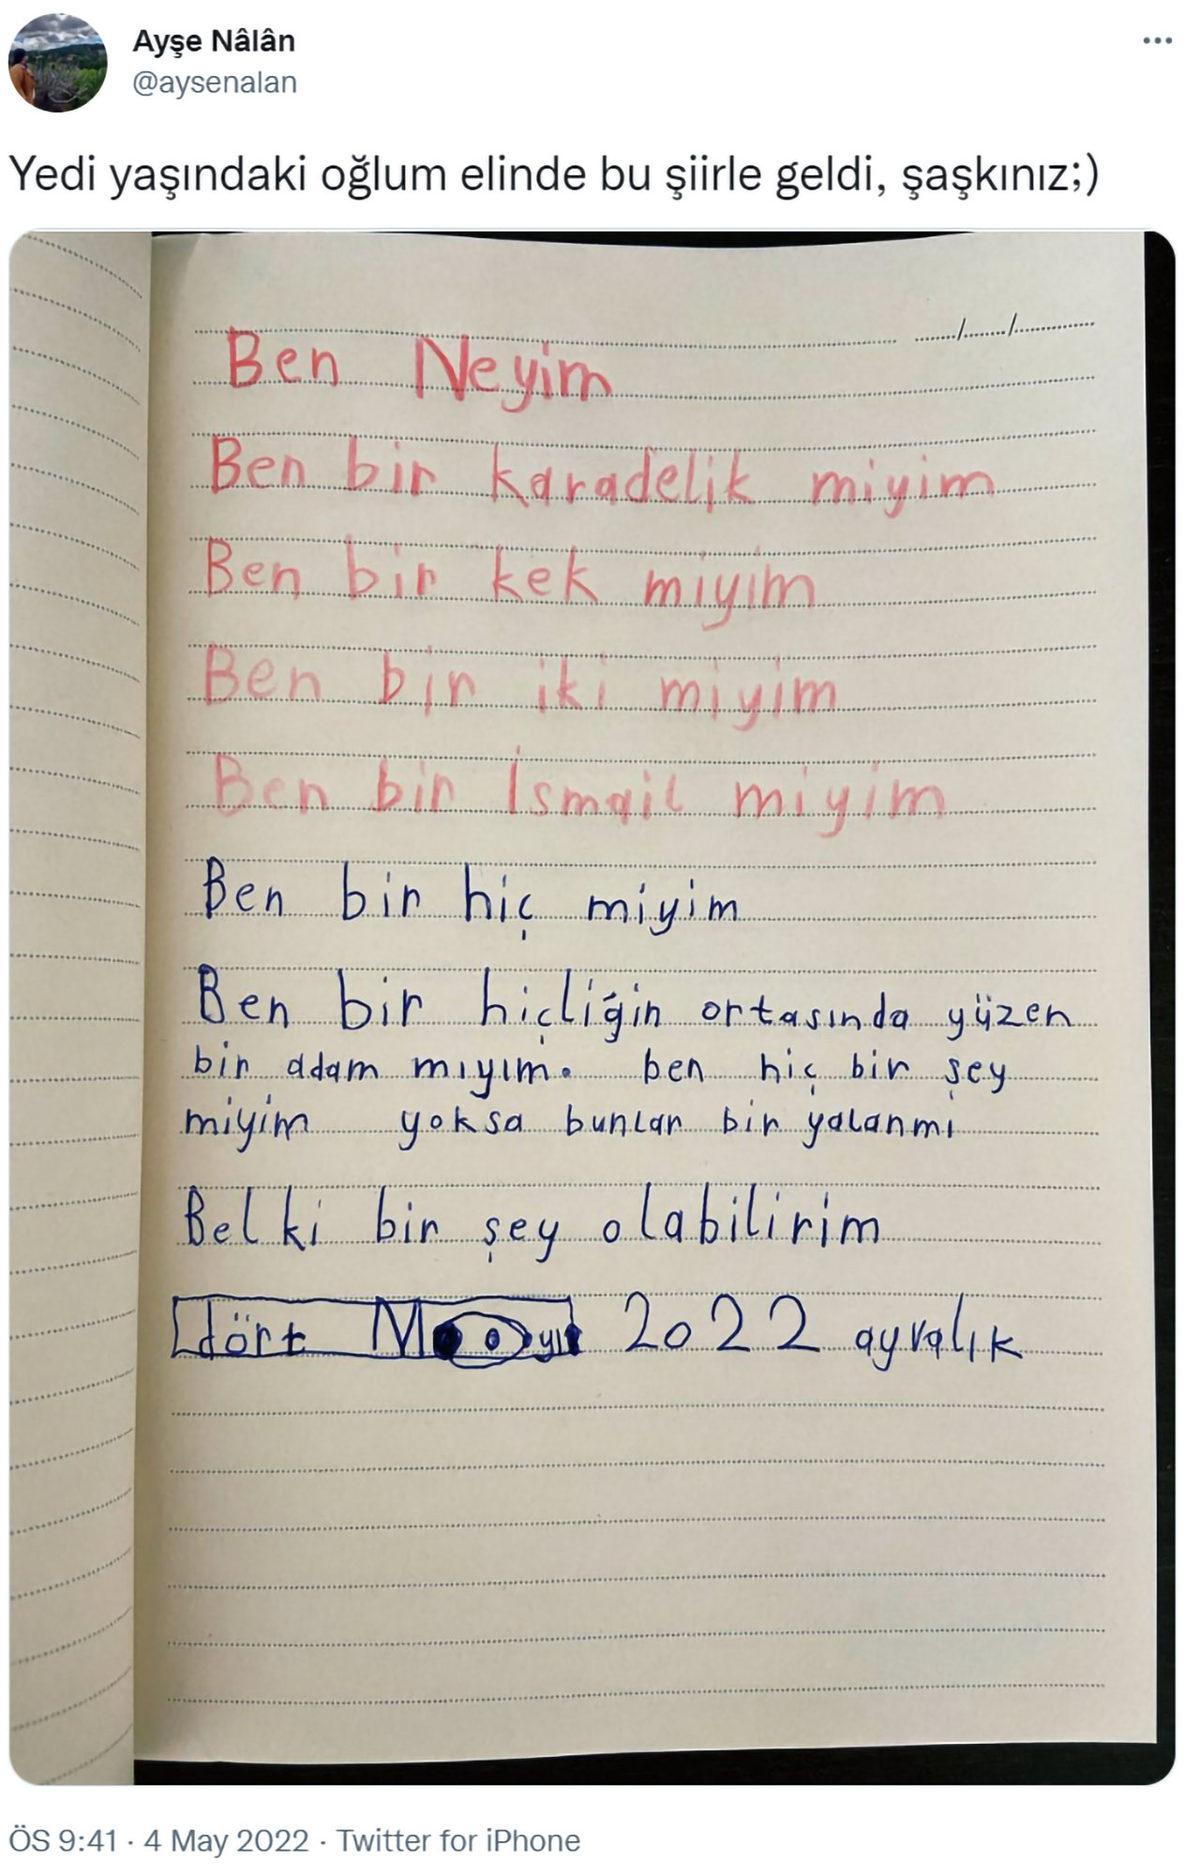 Ayşe Nâlân
@aysenalan
Yedi yaşındaki oğlum elinde bu şiirle geldi, şaşkınız;)
Ben Neyim
Ben bir karadelik miyim
Ben bir kek miyim
Ben bir iki miyim
Ben bir İsmail miyim
Ben bir hiç miyim
Ben bir hiçliğin ortasında yüzen
bir adam mıyım. ben hiç bir şey
miyim yoksa bunlar bir yalanmı
Belki bir şey olabilirim
dört 2022 ayvalık
ÖS 9:41 · 4 May 2022 · Twitter for iPhone